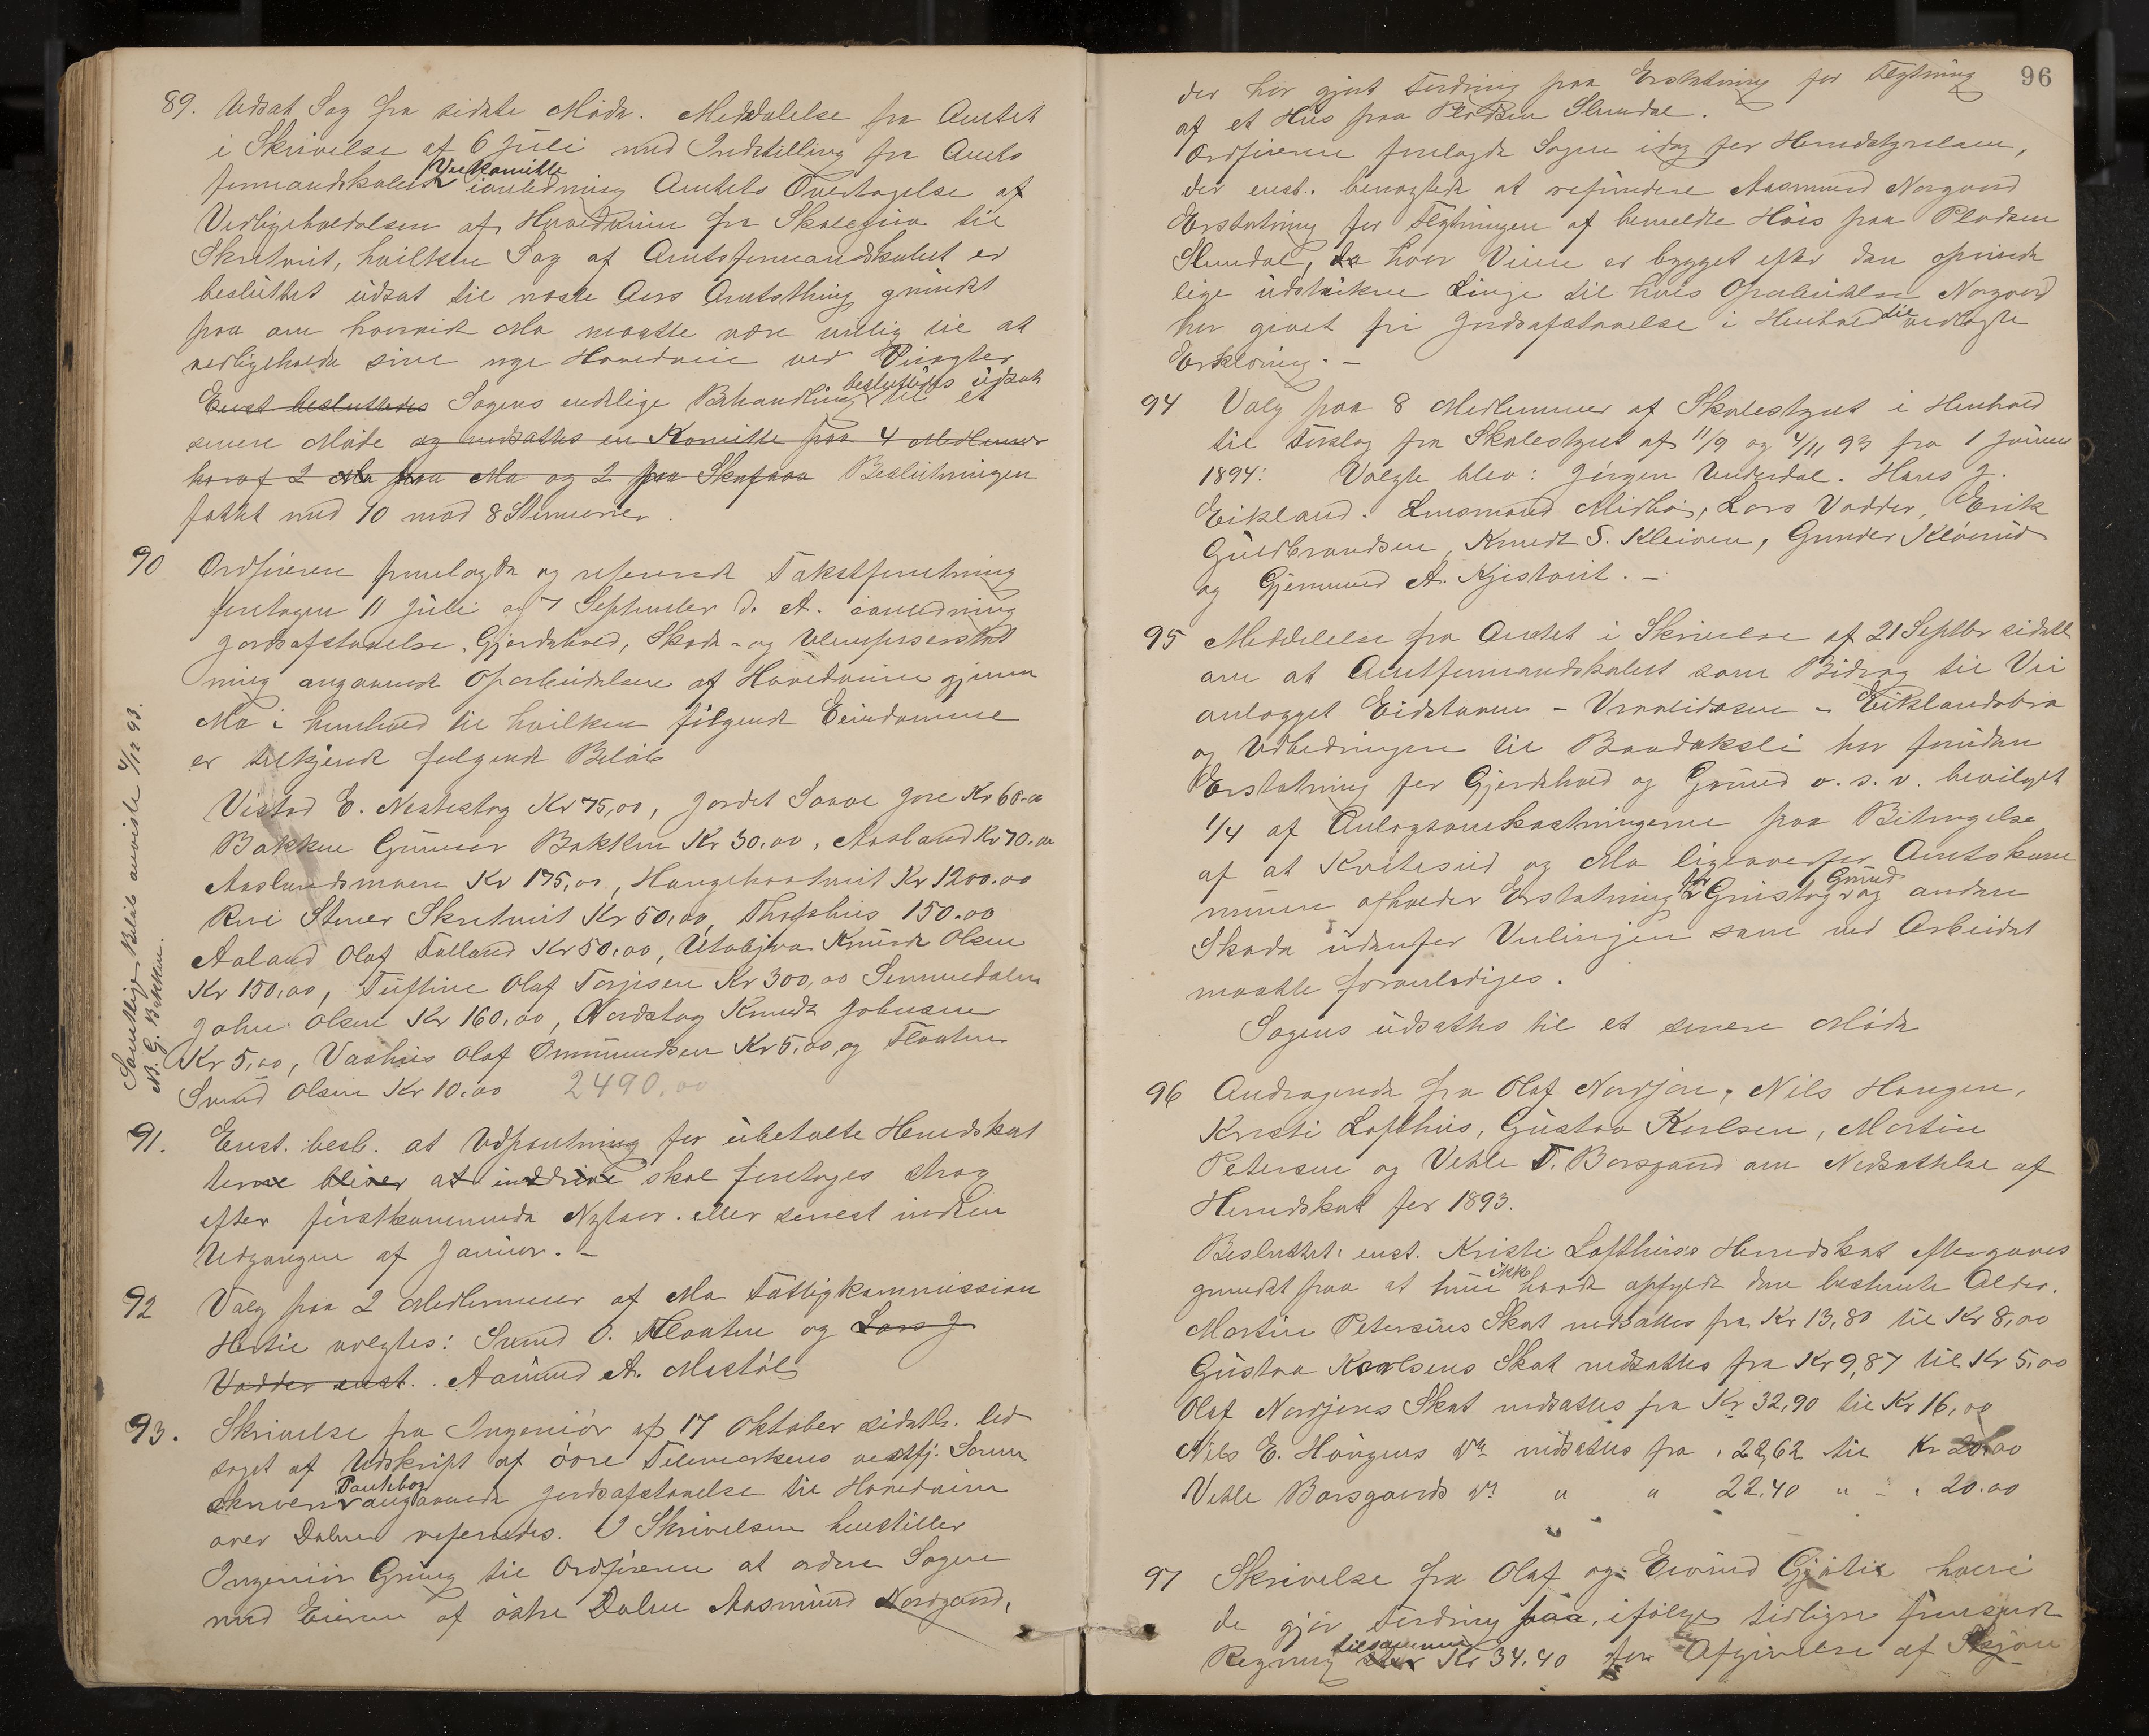 89. Udsat Sag fra sidste Møde. Meddelelse fra Amtet
i Skrivelse af 6 Juli med Indstilling fra Amts
formandskabets Veikomitte i anledning Amtets Overtagelse af
Vedligeholdelsen af Hovedveiene fra til
Skretveit, hvilken Sag af Amtsformandskabet er
besluttet udsat til næste Aars Amtsthing grundet
paa om hvorvidt Mo maatte være villig til at
vedligeholde sine nye Hovedveie ved Veivogter
Enst besluttedes Sagens endelige Behandling besluttedes udsat til et
senere Møde og nedsattes en Komitte paa 4 Medlemmer
horaf 2 fra Mo og 2 fra Skafsaa Beslutningen
fattet med 10 mod 8 Stemmer.
90 Ordføreren fremlagde og refererede Takstforretning
foretagen 11 Juli og 7 September d. A. i anledning
Jordafstaaelse, Gjerdehold, Skade- og Ulempeserstat
ning angaaende Oparbeidelsen af Hovedveien gjennem
Mo i henhold til hvilken følgende Eiendomme
er tilkjendt følgende Beløb
Vistad E. Nestestog Kr 75,00, Jordet Saave Jore Kr 60.00
Bakken Gunnar Bakken Kr 30.00, Aasland Kr 70.00
Aaslandsmoen Kr 175,00, Haugehaatveit Kr 1200.00
Rui Stener Skretveit Kr 50,00, 150.00
Aaland Olaf Talland Kr 50.00, Utabjaa Knudt Olsen
Kr 150,00, Tuftine Olaf Torjesen Kr 300,00 Simmedalen
John Olsen Kr 160.00, Nordstog Knudt Johnsen
Kr 5,00, Vashus Olaf Ommundsen Kr 5.00, og Flaaten
Svend Olsen Kr 10.00 2490.00
Samtlige Beløb anviste 4/12 93.
N. G. Bakken.
91. Enst. besl. at Udpantning for ubetalte Herredskat
terne bliver at inddrive skal foretages strax
efter førstkommende Nytaar. eller senest inden
Udgangen af Januar. –
92 Valg paa 2 Medlemmer af Mo Fattigkommission
Hertil valgtes: Svend O. Flaaten og Lars J
Vadder enst. Aamund A. Mostøl
93. Skrivelse fra Ingeniør af 17 Oktober sidstl. led
saget af Udskrift af øvre Telemarkens vestfj. Soren
skriveri Pantebog angaaende Jordafstaaelse til Hovedveien
over Dalen refereredes. I Skrivelsen henstiller
Ingeniør Gring til Ordføreren at ordne Sagen
med Eieren af østre Dalen Aasmund Nordgaard,
96
der har gjort Fordring paa Erstatning for Flytning
af et Hus paa Pladsen Slemdal.
Ordføreren forelagde Sagen idag for Herredstyrelsen,
der enst. benegtede at refundere Aasmund Norgaard
Erstatning for Flytningen af bemeldte Hus paa Pladsen
Slemdal, da hvor Veien er bygget efter den oprinde
lige udstukne Linje til hvis Oparbeidelse Norgaard
har givet fri Jordafstaaelse i Henhold til vedlagte
Erklæring. –
94 Valg paa 8 Medlemmer af Skolestyret i Henhold
til Forslag fra Skolestyret af 11/9 og 4/11 93 fra 1 Januar
1894: Valgte blev: Jørgen Underdal. Hans J.
Eikland. Midbø, Lars Vadder, Erik
Guldbrandsen, Knudt S. Kleiven, Gunder Kløvrud
og Gjermund A. Kjistveit. –
95 Meddelelse fra Amtet i Skrivelse af 21 Septbr sidstl.
om at Amtformandskabet som Bidrag til Vei
anlægget Eidstaven – Vraaeidosen – Eiklandsbro
og Udbedringen til Bandaksli har foruden
Erstatning for Gjerdehold og Grund o. s. v. bevilget
1/4 af Anlægsomkostningerne paa Betingelse
af at Kvitesied og Mo ligeoverfor Amtskom
munen afholder Erstatning for Grustag Grund og anden
Skade udenfor Veilinjen som ved Arbeidet
maatte foranlediges.
Sagens udsattes til et senere Møde
96 Andragende fra Olaf Nordjore, Nils Haugen,
Kristi Lofthus, Gustav Karlsen, Martin
Petersen og Vetle T. Borsgaard om Nedsættelse af
Herredskat for 1893.
Besluttet: enst. Kristi Lofthus's Herredskat eftergaves
grundet paa at hun ikke havde opfyldt den bestemte Alder.
Martin Petersens Skat nedsattes fra Kr 13,80 til Kr 8,00
Gustav Karlsens Skat nedsattes fra Kr 9,87 til Kr 5,00
Olaf Nordjores Skat nedsattes fra Kr 32,90 til Kr 16,00
Nils E. Haugens do nedsattes fra " 22,62 til Kr 20.00
Vetle Borsgaards do " " 22.40 " – " 20.00
97 Skrivelse fra Olaf og Eivind Gjøtil hvori
de gjør Fordring paa, ifølge tidligere fremsendt
Regning tilsammen stor Kr 34.40 for Afgivelse af Skjøn